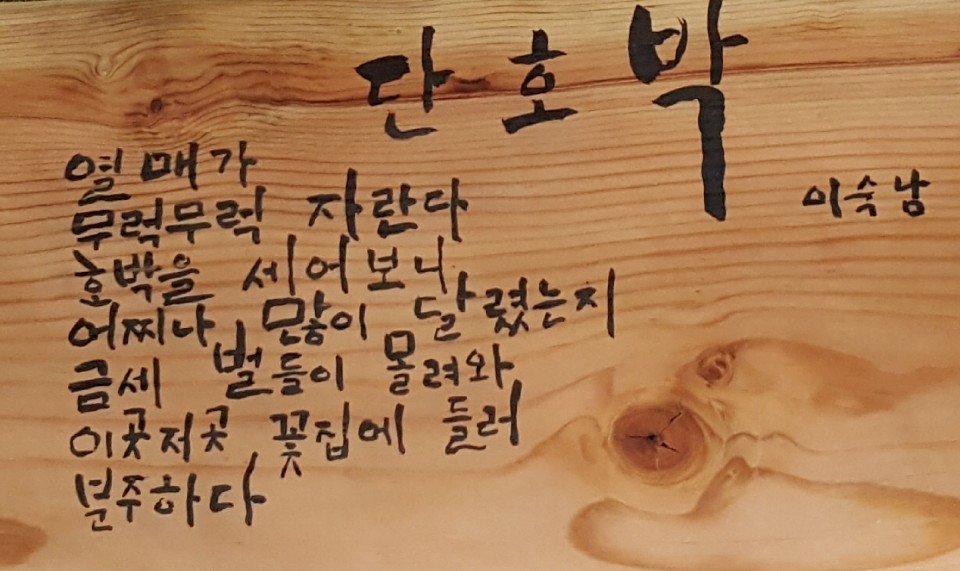 단호박
이숙남
열매가
무럭무럭 자란다
호박을 세어보니
어찌나 많이 달렸는지
금세 벌들이 몰려와
이곳저곳 꽃집에 들러
분주하다